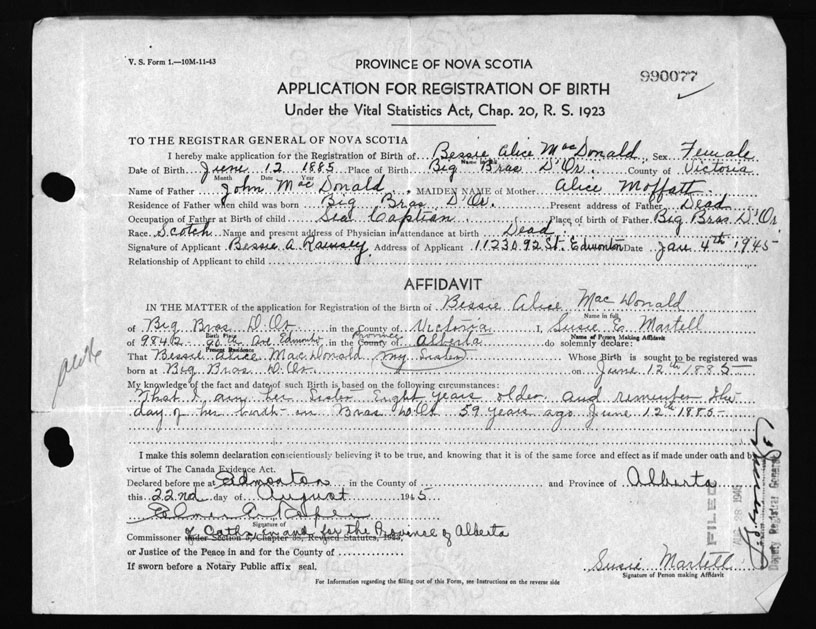 V. S. Form 1.—10M-11-43
PROVINCE OF NOVA SCOTIA
990077
APPLICATION FOR REGISTRATION OF BIRTH
Under the Vital Statistics Act, Chap. 20, R. S. 1923
TO THE REGISTRAR GENERAL OF NOVA SCOTIA
I hereby make application for the Registration of Birth of Bessie Alice MacDonald Sex Female
Name in full
Date of Birth June 12 1885 Place of Birth Big Bras D'Or. County of Victoria
Month Date Year
Name of Father John MacDonald MAIDEN NAME of Mother Alice Moffatt
Residence of Father when child was born Big Bras D'Or. Present address of Father Dead
Occupation of Father at Birth of child Sea Captian Place of birth of Father Big Bras D'Or
Race Scotch Name and present address of Physician in attendance at birth Dead.
Signature of Applicant Bessie A. Ramsey. Address of Applicant 11230 92 St. Edmonton Date Jan 4th 1945
Relationship of Applicant to child
AFFIDAVIT
IN THE MATTER of the application for Registration of the Birth of Bessie Alice MacDonald
Name in full
of Big Bras D'Or in the County of Victoria I, Susie E. Martell
Birth Place Name of Person Making Affidavit
of 9842 90th Ave Edmonton in the County of Province Alberta do solemnly declare:
Present Residence
That Bessie Alice MacDonald my sister Whose Birth is sought to be registered was
born at Big Bras D'Or. on June 12th 1885
My knowledge of the fact and date of such Birth is based on the following circumstances:
That I am her sister Eight years older and remember the
day of her birth in Bras D'Or 59 years ago June 12th 1885
I make this solemn declaration conscientiously believing it to be true, and knowing that it is of the same force and effect as if made under oath and by
virtue of The Canada Evidence Act.
Declared before me at Edmonton in the County of and Province of Alberta
this 22nd day of August 1945
Signature of
Commissioner under Section 5, Chapter 38, Revised Statutes, 1923, of Oaths in and for the Province of Alberta
or Justice of the Peace in and for the County of
If sworn before a Notary Public affix seal.
Susie Martell
Signature of Person making Affidavit
For Information regarding the filling out of this Form, see Instructions on the reverse side
FILED
Deputy Registrar General